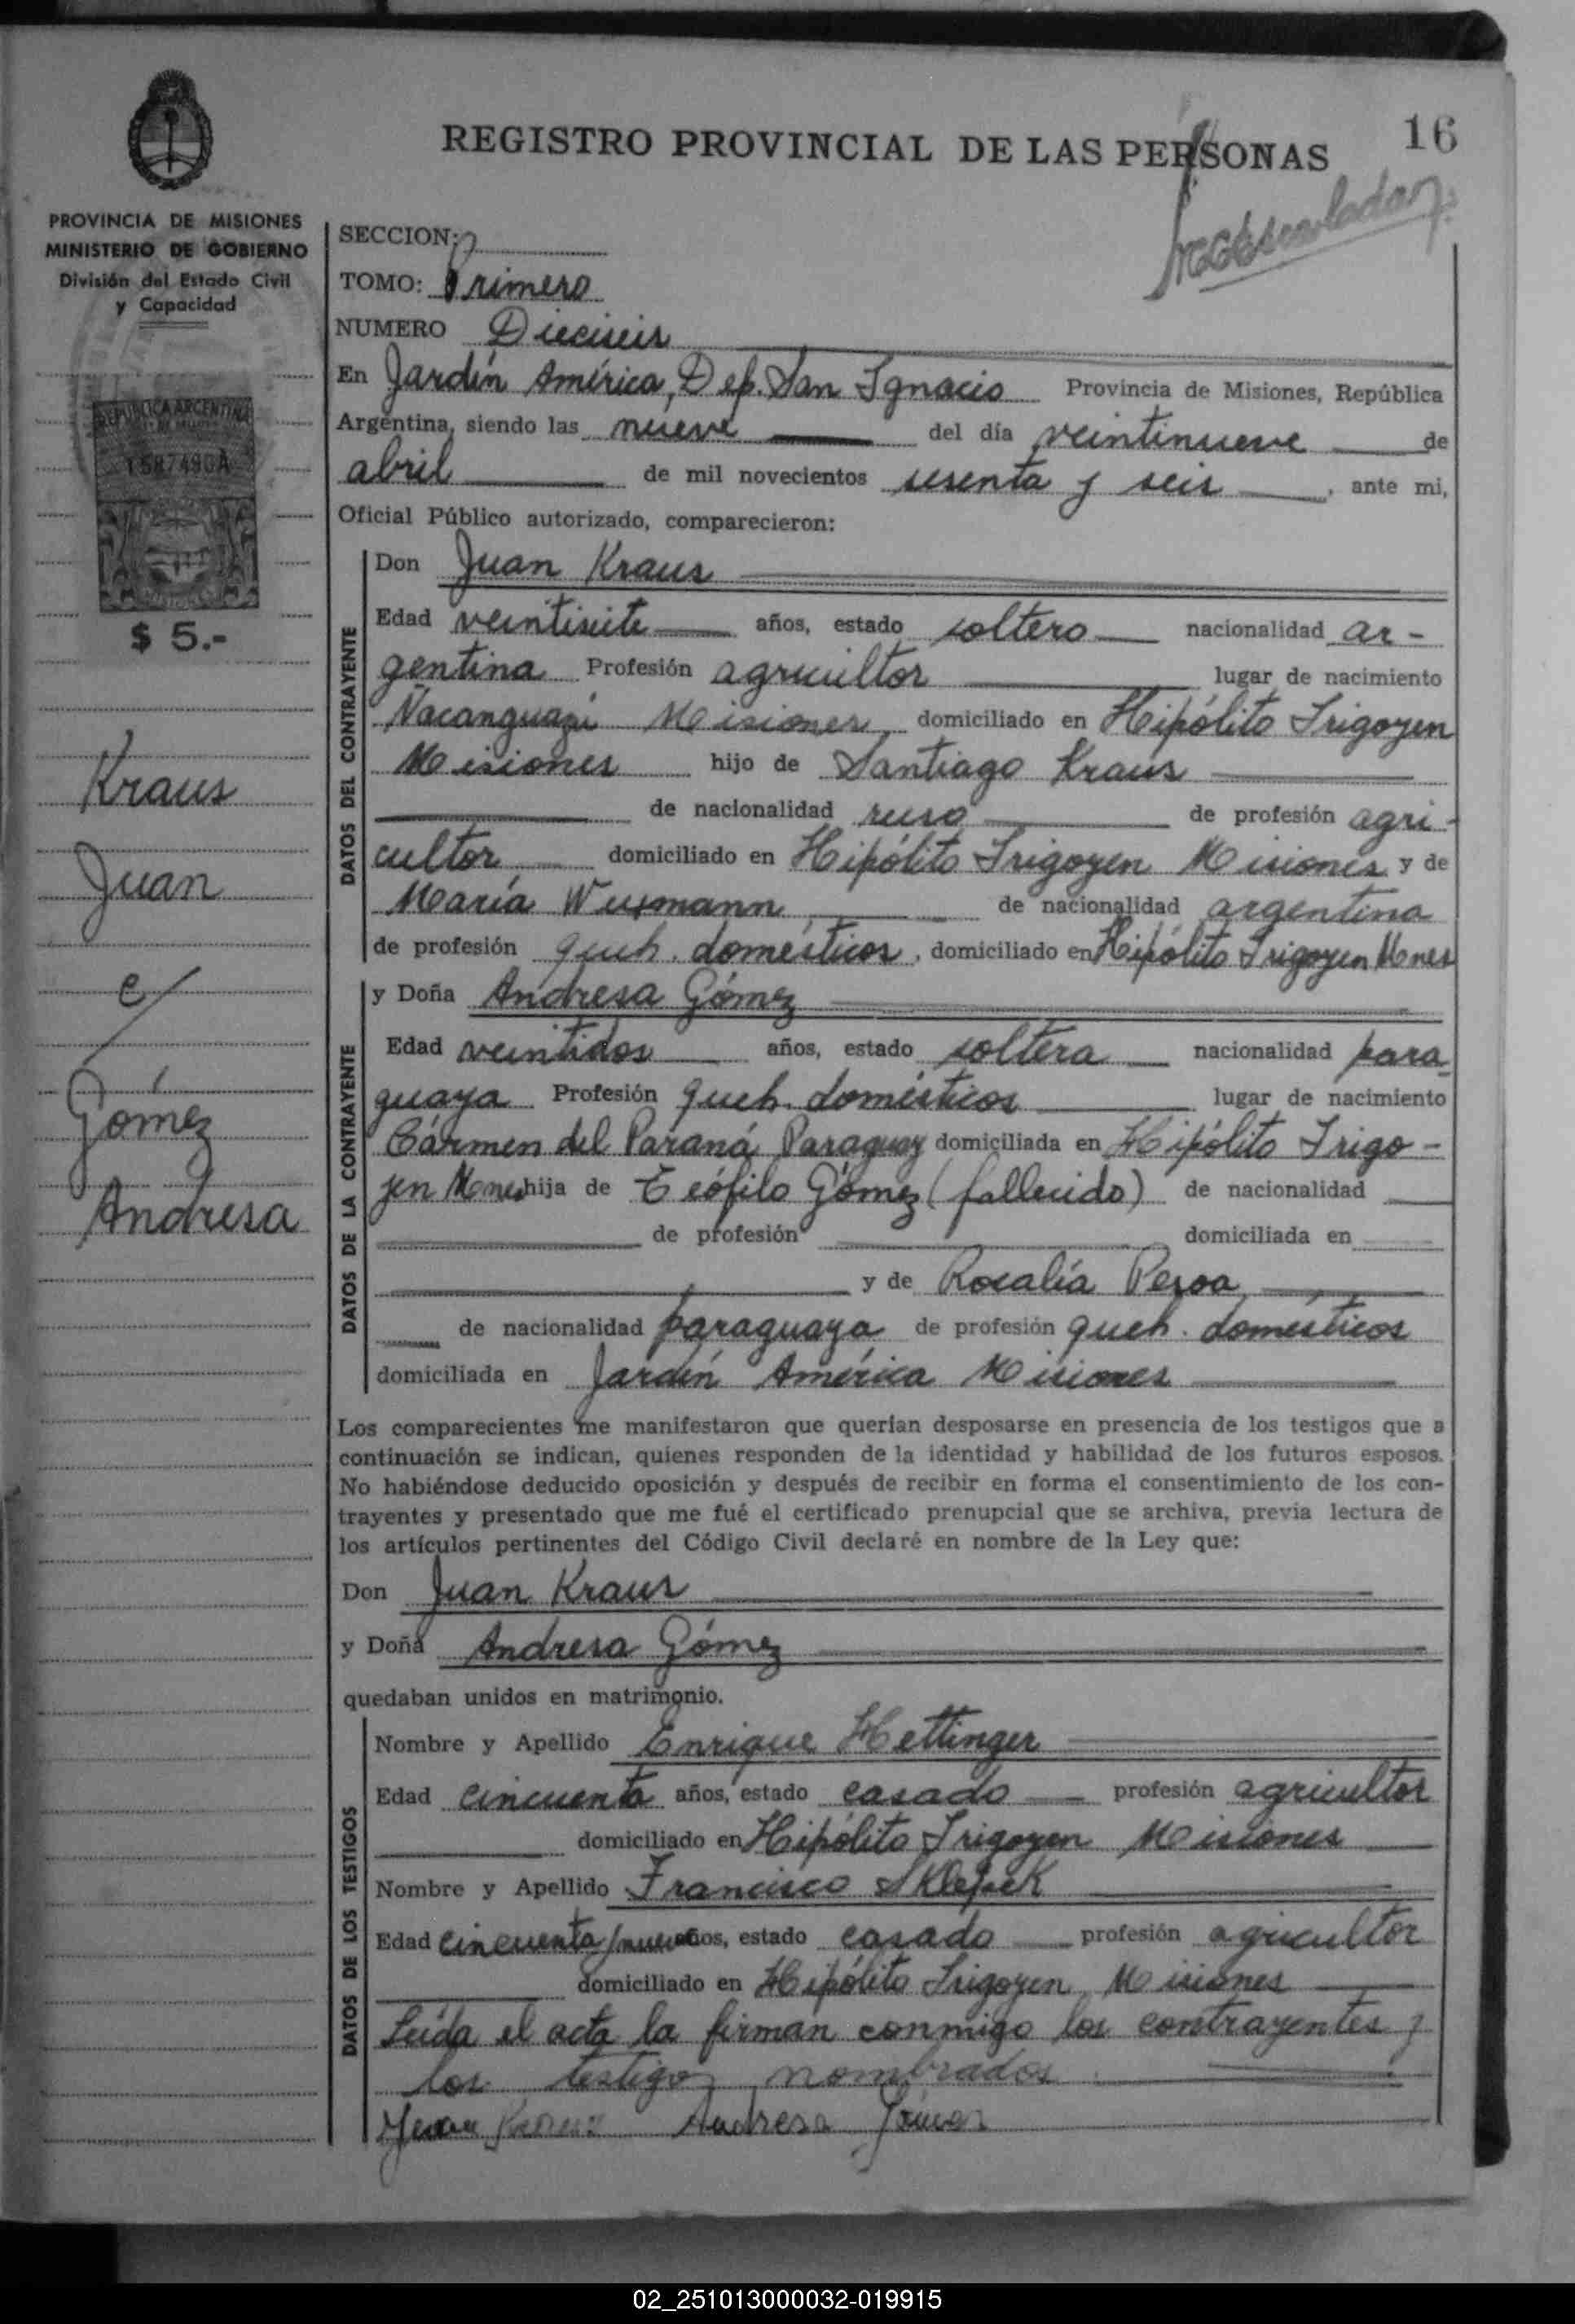 16
REGISTRO PROVINCIAL DE LAS PERSONAS
PROVINCIA DE MISIONES
MINISTERIO DE GOBIERNO
División del Estado Civil
y Capacidad
REPUBLICA ARGENTINA
$ 5.-
Kraus
Juan
c/
Gómez
Andresa
SECCION:
TOMO: Primero
NUMERO Dieciseis
En Jardín América, Dep. San Ignacio Provincia de Misiones, República
Argentina, siendo las nueve del día veintinueve de
abril de mil novecientos sesenta y seis, ante mi,
Oficial Público autorizado, comparecieron:
DATOS DEL CONTRAYENTE
Don Juan Kraus
Edad veintisiete años, estado soltero nacionalidad ar-
gentina Profesión agricultor lugar de nacimiento
Ñacanguazú Misiones domiciliado en Hipólito Irigoyen
Misiones hijo de Santiago Kraus
de nacionalidad ruso de profesión agri-
cultor domiciliado en Hipólito Irigoyen Misiones y de
María de nacionalidad argentina
de profesión queh. domésticos, domiciliado en Hipólito Irigoyen Mnes
DATOS DE LA CONTRAYENTE
y Doña Andresa Gómez
Edad veintidos años, estado soltera nacionalidad para-
guaya Profesión queh. domésticos lugar de nacimiento
Cármen del Paraná Paraguay domiciliada en Hipólito Irigo-
yen Mnes hija de Teófilo Gómez (fallecido) de nacionalidad
de profesión domiciliada en
y de Rosalía
de nacionalidad paraguaya de profesión queh. domésticos
domiciliada en Jardín América Misiones
Los comparecientes me manifestaron que querían desposarse en presencia de los testigos que a
continuación se indican, quienes responden de la identidad y habilidad de los futuros esposos.
No habiéndose deducido oposición y después de recibir en forma el consentimiento de los con-
trayentes y presentado que me fué el certificado prenupcial que se archiva, previa lectura de
los artículos pertinentes del Código Civil declaré en nombre de la Ley que:
Don Juan Kraus
y Doña Andresa Gómez
quedaban unidos en matrimonio.
DATOS DE LOS TESTIGOS
Nombre y Apellido Enrique Hettinger
Edad cincuenta años, estado casado profesión agricultor
domiciliado en Hipólito Irigoyen Misiones
Nombre y Apellido Francisco
Edad cincuenta años, estado casado profesión agricultor
domiciliado en Hipólito Irigoyen Misiones
Leída el acta la firman conmigo los contrayentes y
los testigos nombrados
Juan Kraus Andresa Gómez
02_251013000032-019915